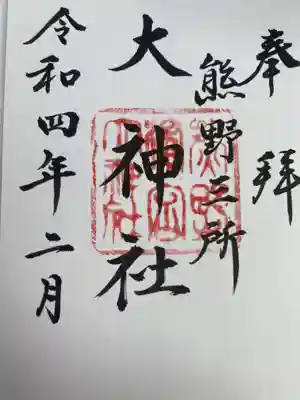 奉拝
熊野三所
大神社
令和四年二月